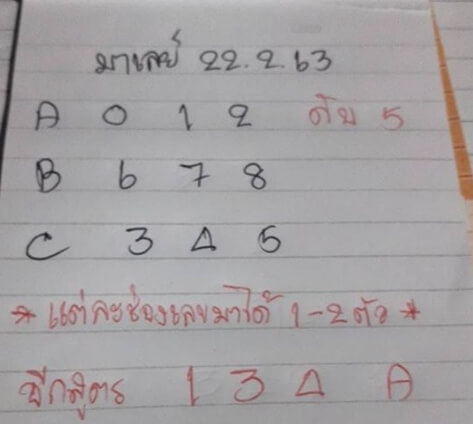 มาเลย์ 22.2.63
A 0 1 2 ดับ 5
B 6 7 8
C 3 4 5
* แต่ละช่องเลขมาได้ 1-2 ตัว *
อีกสูตร 1 3 4 A